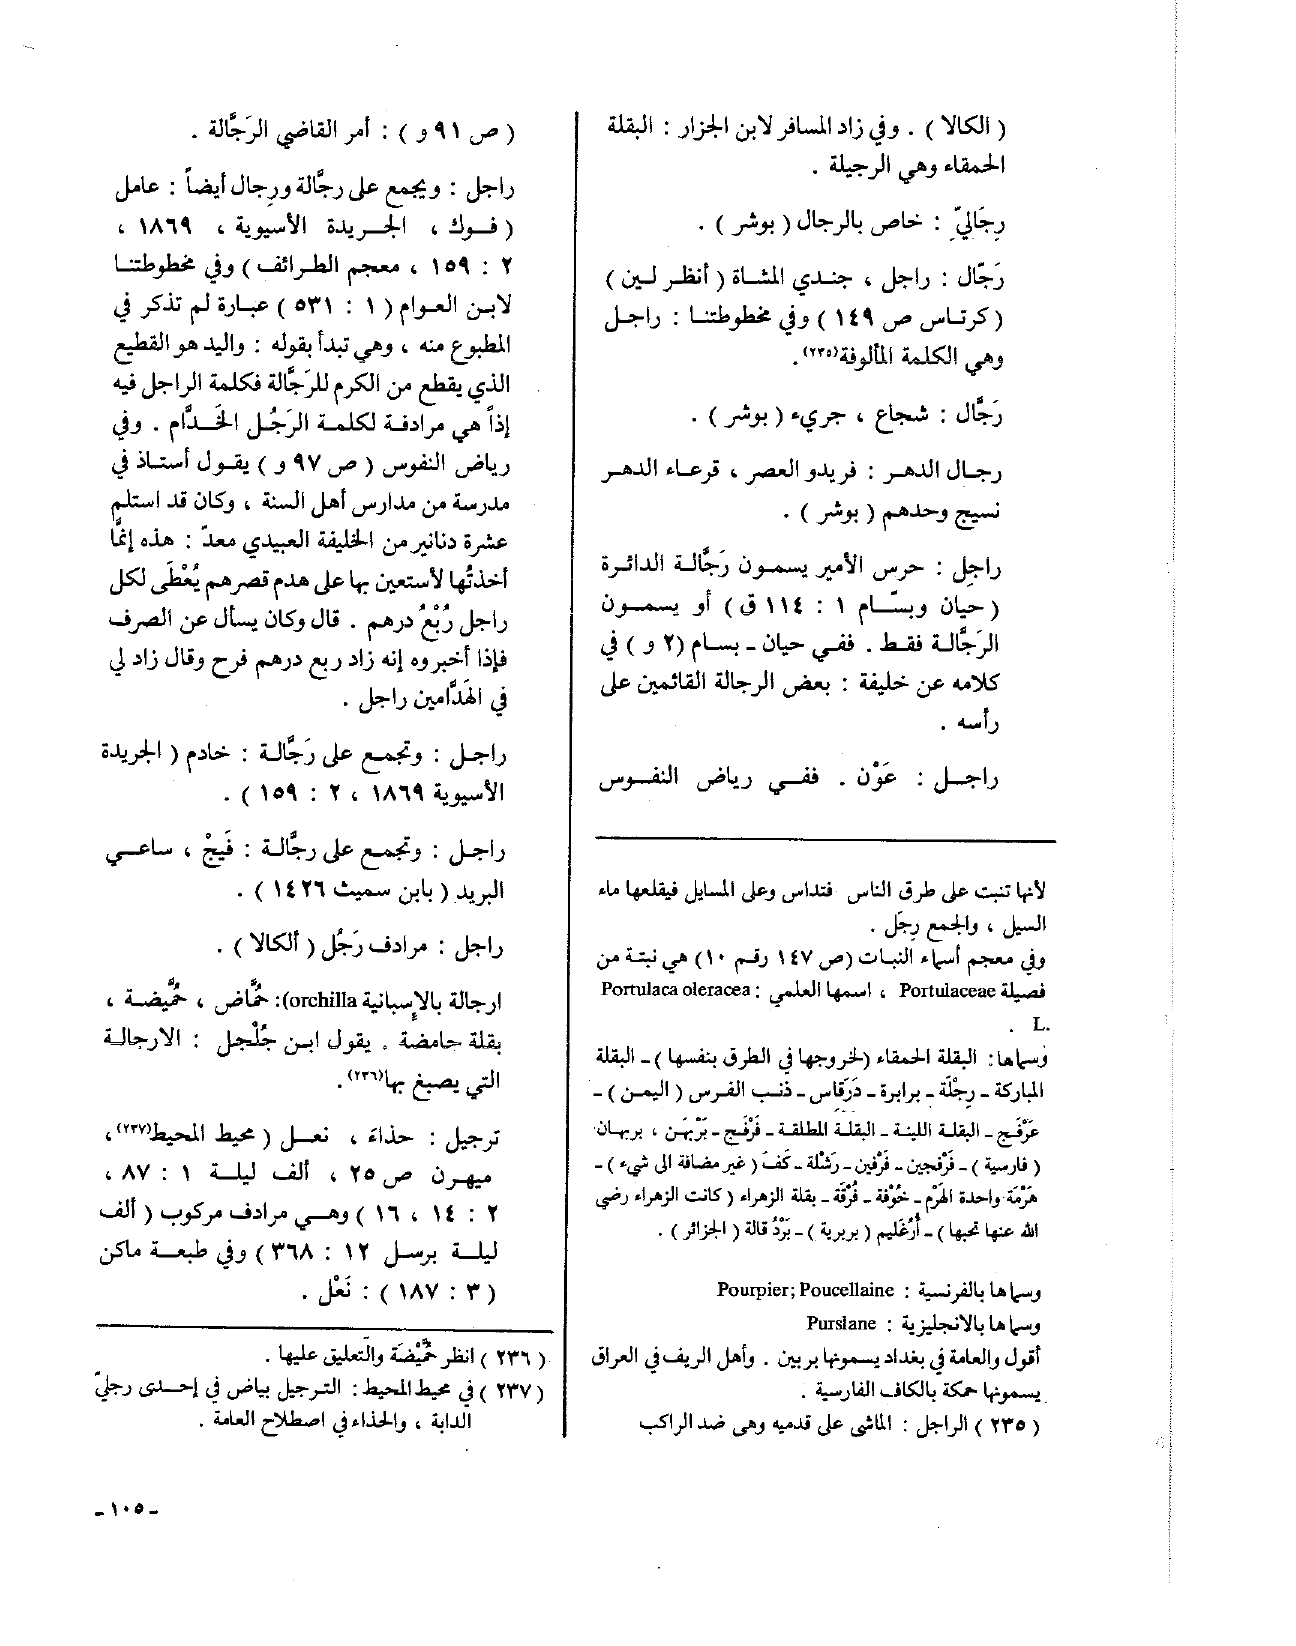 ( الكالا ) . وفي زاد المسافر لابن الجزار : البقلة
الحمقاء وهي الرجيلة .
رِجَاليّ : خاص بالرجال ( بوشر ) .
رَجّال : راجل ، جندي المشاة ( أنظر لين )
( كرتاس ص ١٤٩ ) وفي مخطوطتنا : راجل
وهي الكلمة المألوفة(٢٣٥).
رَجَّال : شجاع ، جريء ( بوشر ) .
رجال الدهر : فريدو العصر ، قرعاء الدهر
نسيج وحدهم ( بوشر ) .
راجِل : حرس الأمير يسمون رَجَّالة الدائرة
( حيان وبسّام ١ : ١١٤ ق ) أو يسمون
الرَجَّالة فقط . ففي حيان - بسام (٢ و ) في
كلامه عن خليفة : بعض الرجالة القائمين على
رأسه .
راجل : عَوْن . ففي رياض النفوس
لأنها تنبت على طرق الناس فتداس وعلى المسايل فيقلعها ماء
السيل ، والجمع رِجَل .
وفي معجم أسماء النبات (ص ١٤٧ رقم ١٠) هي نبتة من
فصيلة Portulaceae ، اسمها العلمي : Portulaca oleracea
L. .
وسماها: البقلة الحمقاء (لخروجها في الطرق بنفسها ) - البقلة
المباركة - رِجْلَة - برابرة - دَرَقاس - ذنب الفرس ( اليمن ) -
عَرْفَج - البقلة اللينة - البقلة المطلقة - فَرْفَج - بَرْبَهَن ، بربهان
( فارسية ) - فَرْفجين - فَرْفين - رَشْلة - كَفَ ( غير مضافة الى شيء ) -
هَرْمَة واحدة الهَرْم - خُوْفة - فُرْقَة - بقلة الزهراء ( كانت الزهراء رضي
الله عنها تحبها ) - أَرْغليم ( بربرية ) - بَرْدُ قالة ( الجزائر ) .
وسماها بالفرنسية : Pourpier; Poucellaine
وسماها بالانجليزية : Purslane
أقول والعامة في بغداد يسمونها بربين . وأهل الريف في العراق
يسمونها حمكة بالكاف الفارسية .
( ٢٣٥ ) الراجل : الماشى على قدميه وهى ضد الراكب
( ص ٩١ و ) : أمر القاضي الرَجَّالة .
راجل : ويجمع على رجَّالة ورِجال أيضاً : عامل
( فوك ، الجريدة الأسيوية ، ١٨٦٩ ،
٢ : ١٥٩ ، معجم الطرائف ) وفي مخطوطتنا
لابن العوام ( ١ : ٥٣١ ) عبارة لم تذكر في
المطبوع منه ، وهي تبدأ بقوله : واليد هو القطيع
الذي يقطع من الكرم للرَجَّالة فكلمة الراجل فيه
إذاً هي مرادفة لكلمة الرَجُل الخَدَّام . وفي
رياض النفوس ( ص ٩٧ و ) يقول أستاذ في
مدرسة من مدارس أهل السنة ، وكان قد استلم
عشرة دنانير من الخليفة العبيدي معدّ : هذه إنَّما
أخذتُها لأستعين بها على هدم قصرهم يُعْطَى لكل
راجل رُبْعُ درهم . قال وكان يسأل عن الصرف
فإذا أخبروه إنه زاد ربع درهم فرح وقال زاد لي
في الهَدَّامين راجل .
راجل : وتجمع على رَجَّالة : خادم ( الجريدة
الأسيوية ١٨٦٩ ، ٢ : ١٥٩ ) .
راجل : وتجمع على رجَّالة : فَيجْ ، ساعي
البريد ( باين سميث ١٤٢٦ ) .
راجل : مرادف رَجُل ( ألكالا ) .
ارجالة بالإسبانية orchilla): حُمَّاض ، حُمَّيضة ،
بقلة حامضة . يقول ابن جُلْجل : الارجالة
التي يصبغ بها(٢٣٦).
ترجيل : حذاء ، نعل ( محيط المحيط(٢٣٧)،
ميهرن ص ٢٥ ، ألف ليلة ١ : ٨٧ ،
٢ : ١٤ ، ١٦ ) وهي مرادف مركوب ( ألف
ليلة برسل ١٢ : ٣٦٨ ) وفي طبعة ماكن
( ٣ : ١٨٧ ) : نَعْل .
( ٢٣٦ ) انظر حُمَّيْضَة والتعليق عليها .
( ٢٣٧ ) في محيط المحيط : الترجيل بياض في إحدى رجليّ
الدابة ، والحذاء في اصطلاح العامة .
- ١٠٥ -